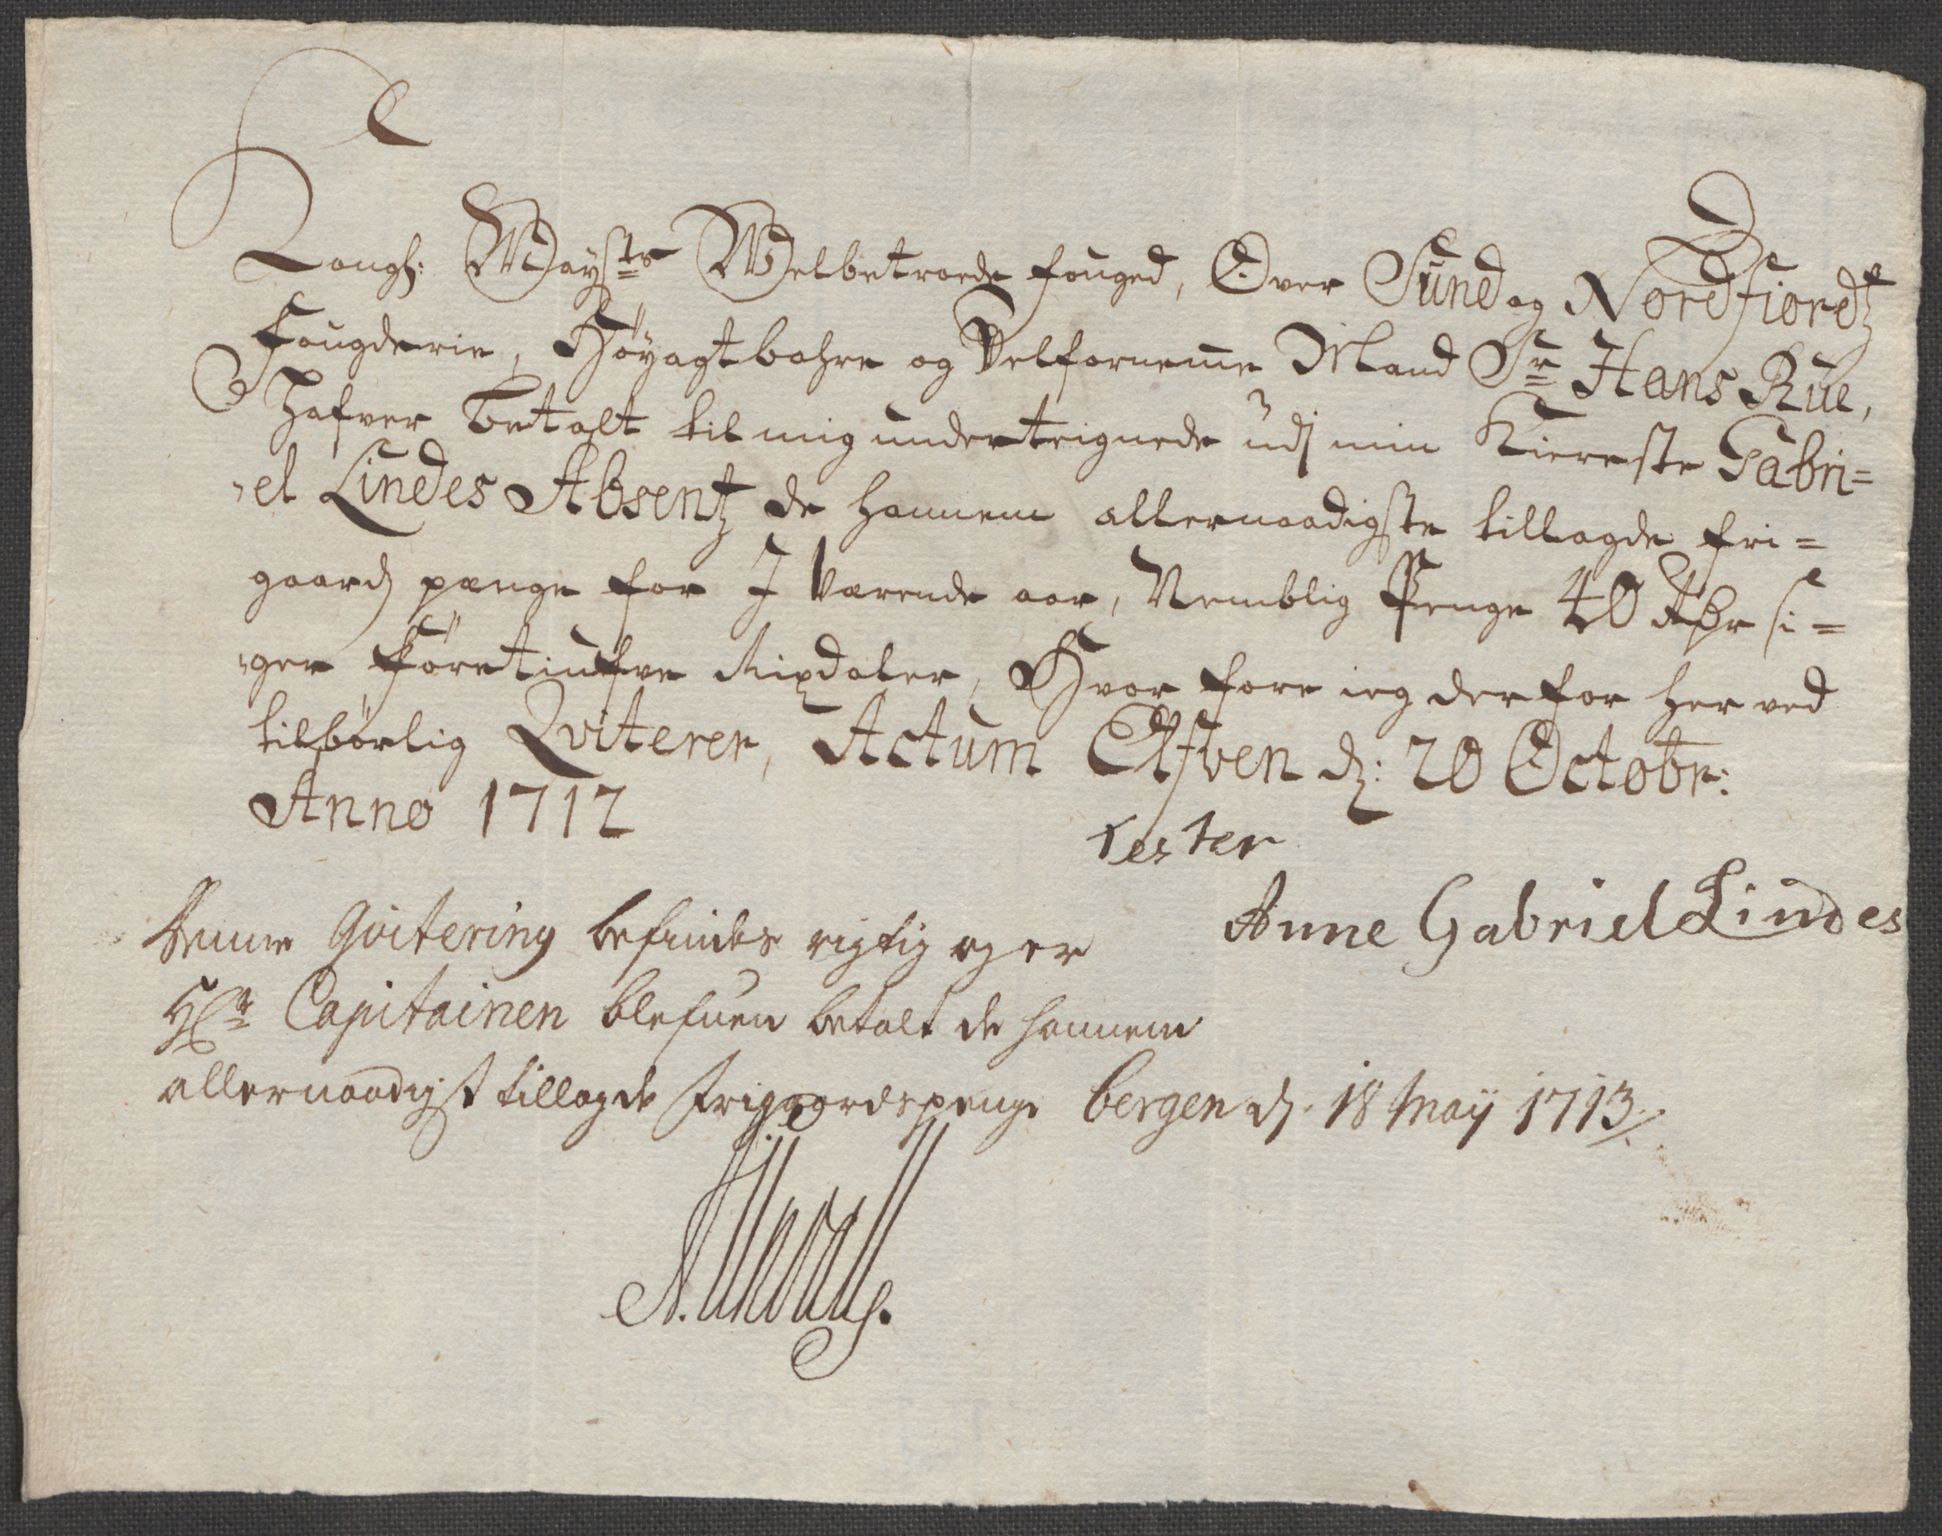 Kongl: Mayts Welbetroede fouged, Over Sund og Nordfiordz
Fougderie, Höyagtbahre og Velforneme Mand Sr Hans Rue,
Hafver Betalt til mig underteignede udj min Kiereste Gabri=
=el Lindes Absentz de hannem allernaadigste tillagde fri=
gaardz penge for J Værende aar, Nemblig Penge 40 Rdr si=
=ger förretiufve Rixdaler, Hvor fore ieg derfor her ved
tilbörlig Qviterer, Actum Elfven d: 20 Octobr:
Anno 1712
Anne Gabriel Lindes
Denne Qvitering befindes rigtig og er
Hr Capitainen blefuen betalt de hannem
allernaadigst tillagde frigaardspenge bergen d. 18 Maÿ 1713